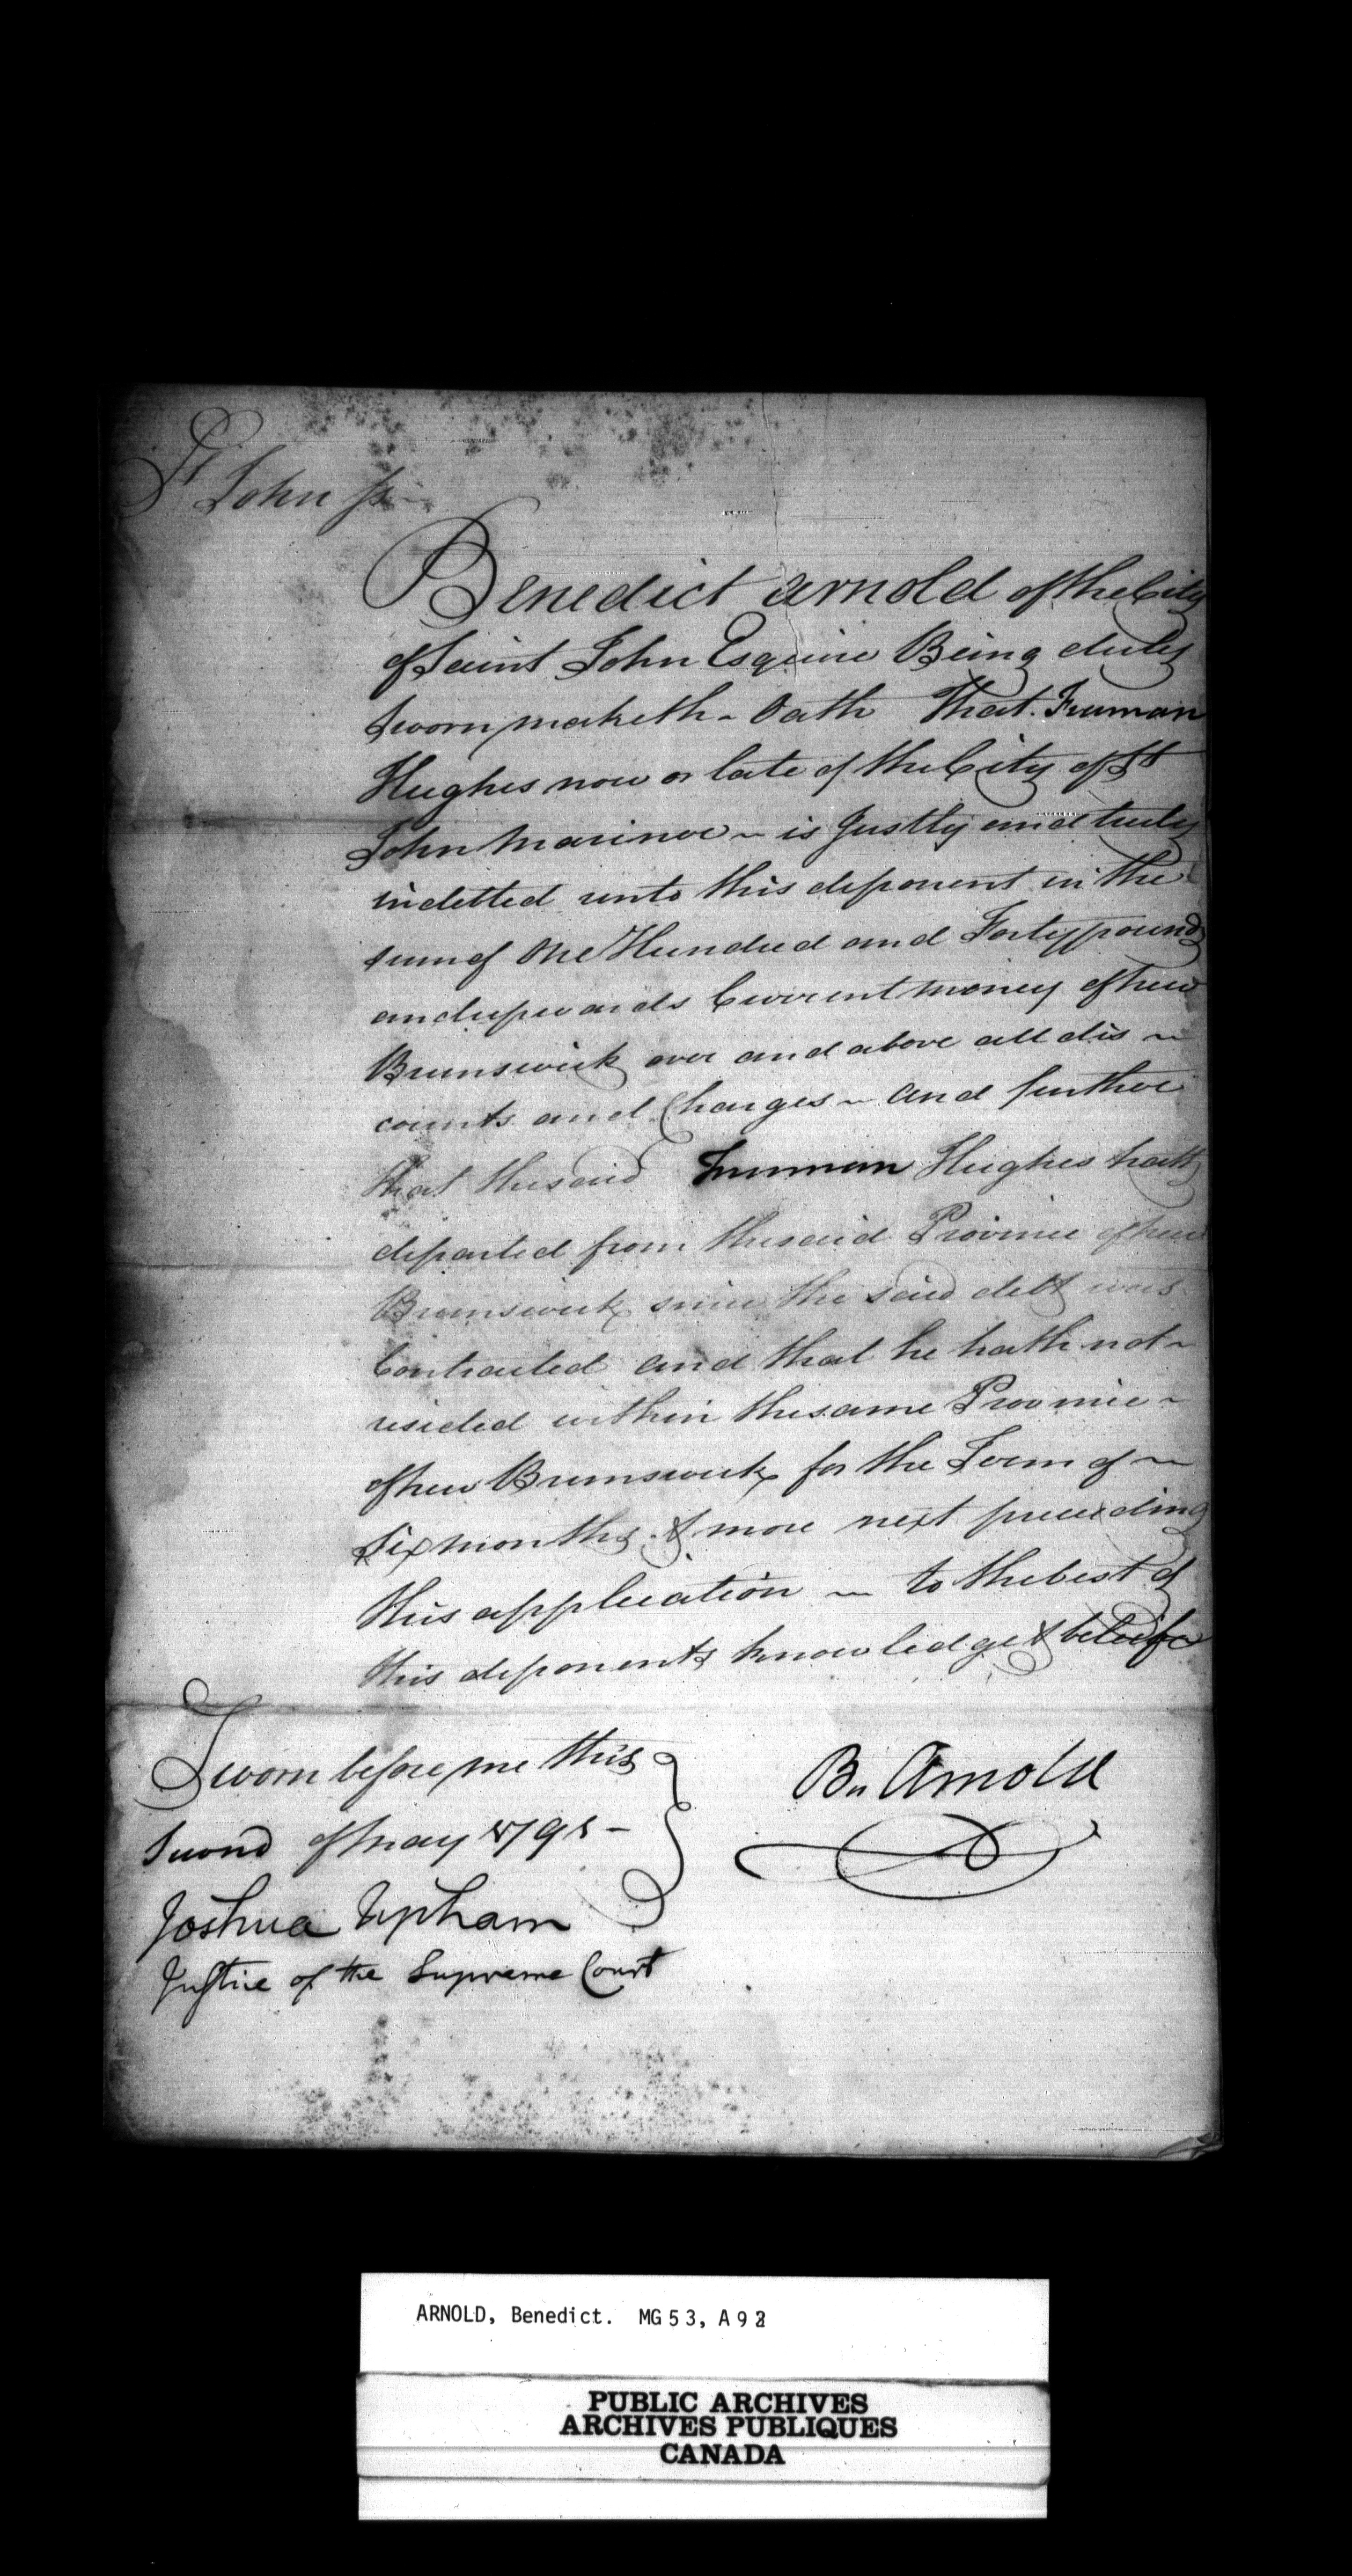 St John ss
Benedict Arnold of the City
of Saint John Esquire Being duly
sworn maketh Oath That Truman
Hughes now or late of the City of St
John Mariner is Justly and truly
indetted unto this deponent in the
sum of One Hundred and Forty pounds
and upwards Current money of new
Brunswick over and above all dis
counts and Charges and further
that the said Truman Hughes hath
departed from the said Province of new
Brunswick since the said debt was
Contracted and that he hath not
resided within the same Province
of new Brunswick for the Term of
Six months & more next preceeding
this application to the best of
this deponents knowledge & beleife
Sworn before me this
Second of may 1791 -
Joshua Upham
Justice of the Supreme Court
Bn Arnold
ARNOLD, Benedict. MG53, A92
PUBLIC ARCHIVES
ARCHIVES PUBLIQUES
CANADA